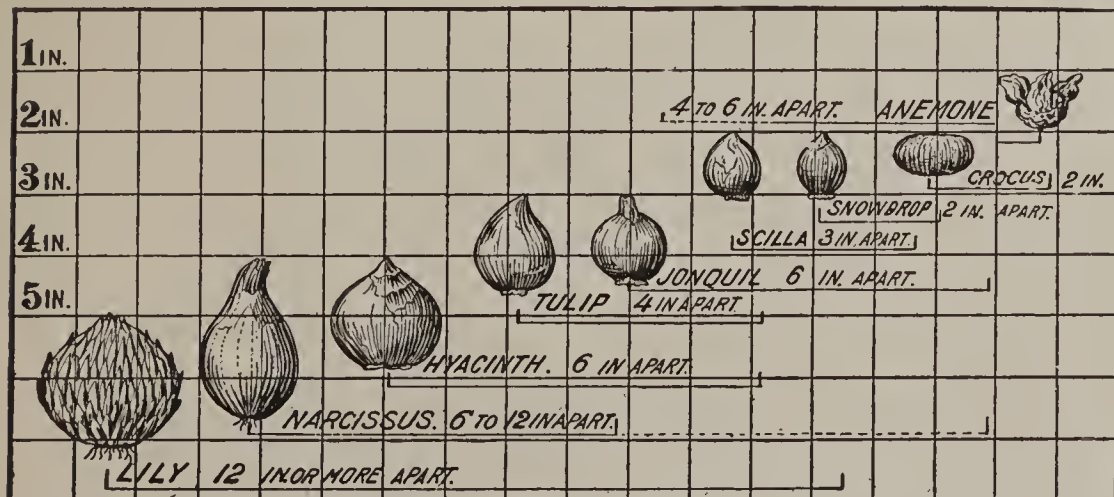 1 IN.
2 IN.
4 TO 6 IN. APART. ANEMONE
3 IN.
CROCUS 2 IN.
SNOWDROP 2 IN. APART.
4 IN.
SCILLA 3 IN. APART.
5 IN.
JONQUIL 6 IN. APART.
TULIP 4 IN APART
HYACINTH. 6 IN APART.
NARCISSUS. 6 TO 12 IN APART.
LILY 12 IN. OR MORE APART.